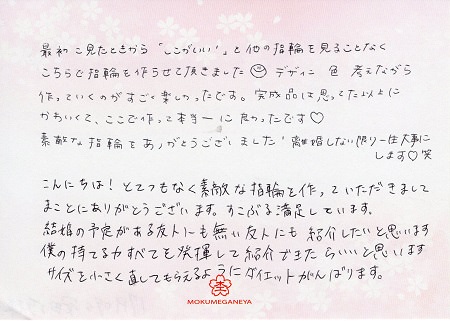 最初に見たときから「ここがいい」と他の指輪を見ることなく
こちらで指輪を作らせて頂きました☺ デザイン 色 考えながら
作っていくのがすごく楽しかったです。完成品は思ってた以上に
かわいくて、ここで作って本当に良かったです♡
素敵な指輪をありがとうございました！離婚しない限り一生大事に
します♡笑
こんにちは！とてつもなく素敵な指輪を作っていただきまして
まことにありがとうございます。すこぶる満足しています。
結婚の予定がある友人にも無い友人にも紹介したいと思います
僕の持てる力すべてを発揮して紹介できたらいいと思います
サイズを小さく直してもらえるようにダイエットがんばります。
MOKUMEGANEYA